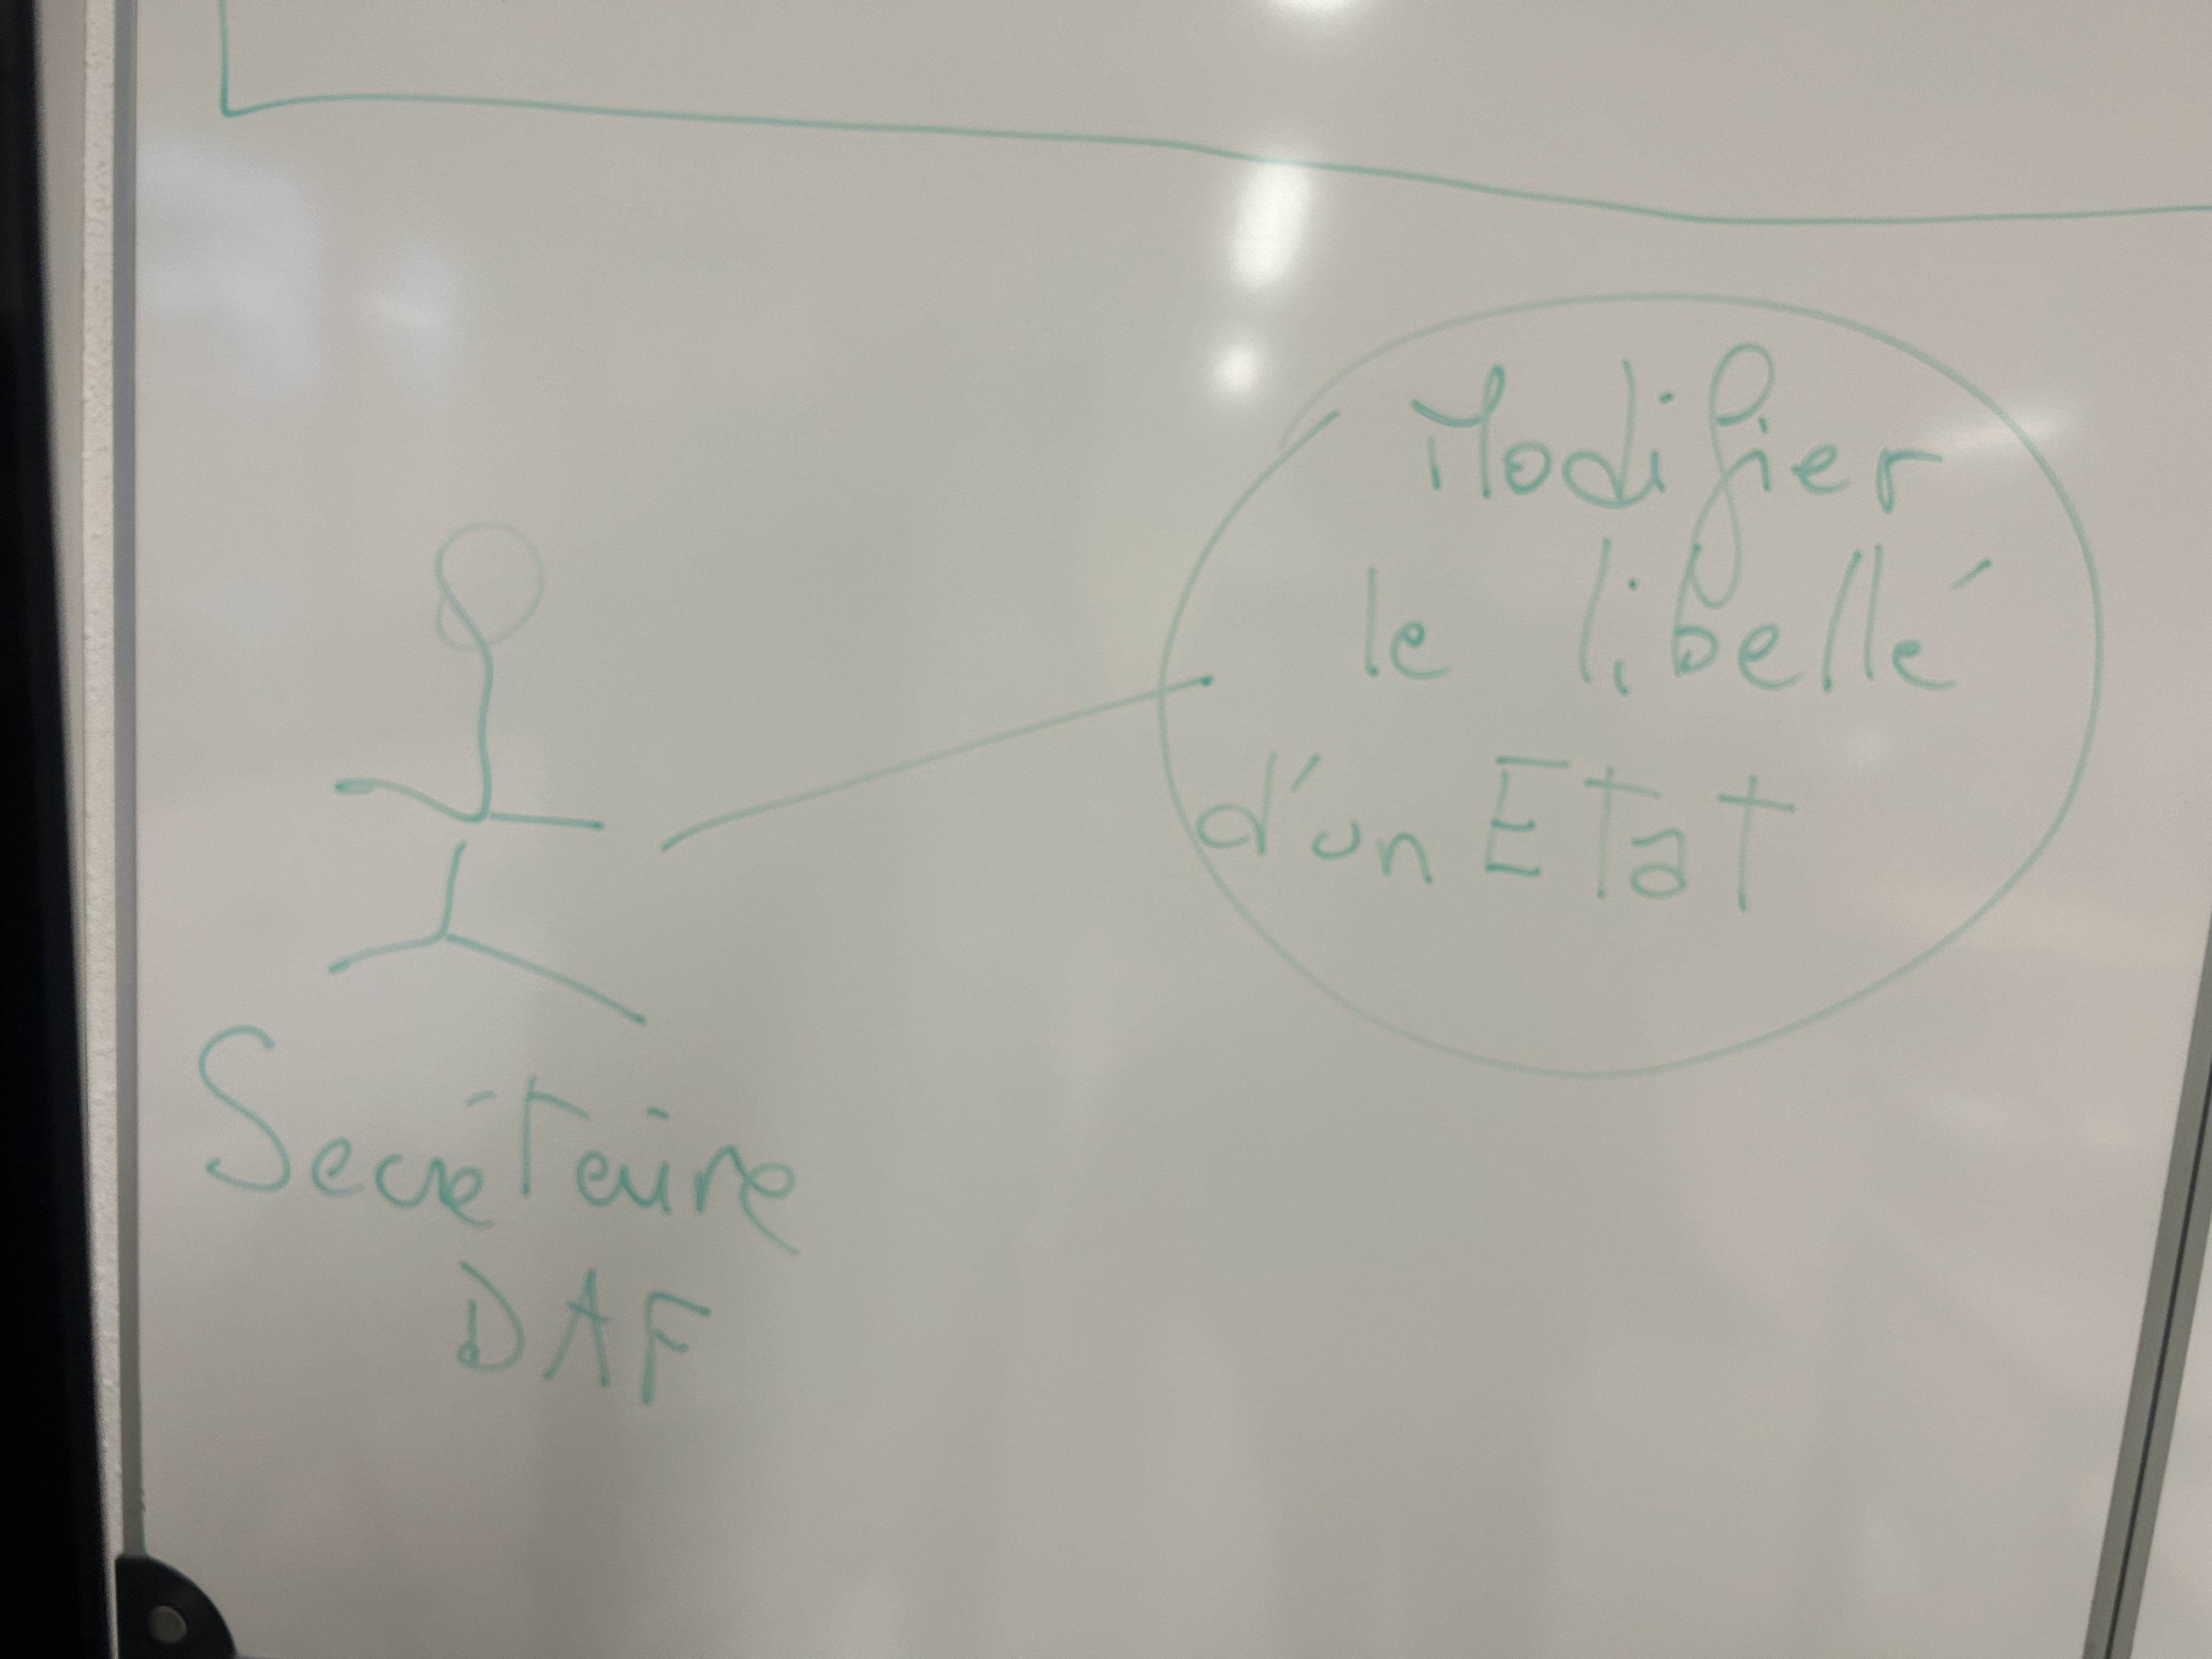 Modifier
le libellé
d'un Etat
Secrétaire
DAF